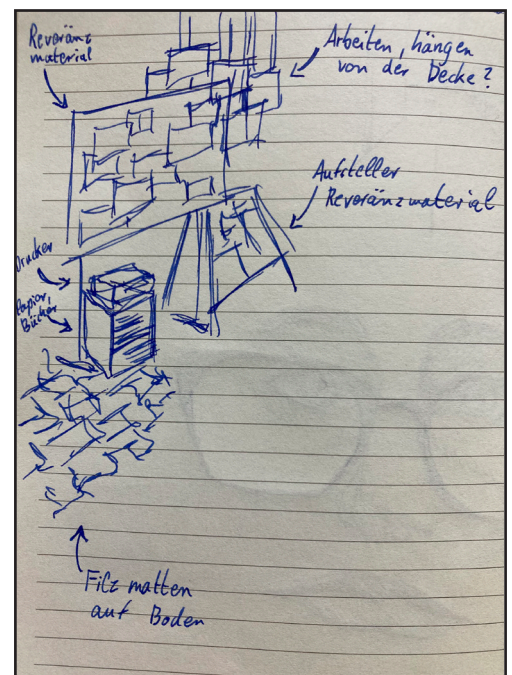 Reveränz
material
Arbeiten, hängen
von der Decke?
Aufsteller
Reveränzmaterial
Drucker
Papier,
Bücher
Filzmatten
auf Boden